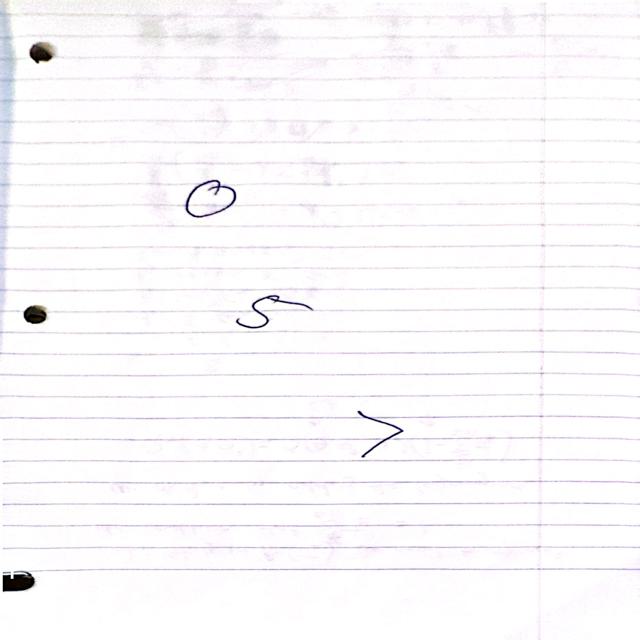 0
5
>